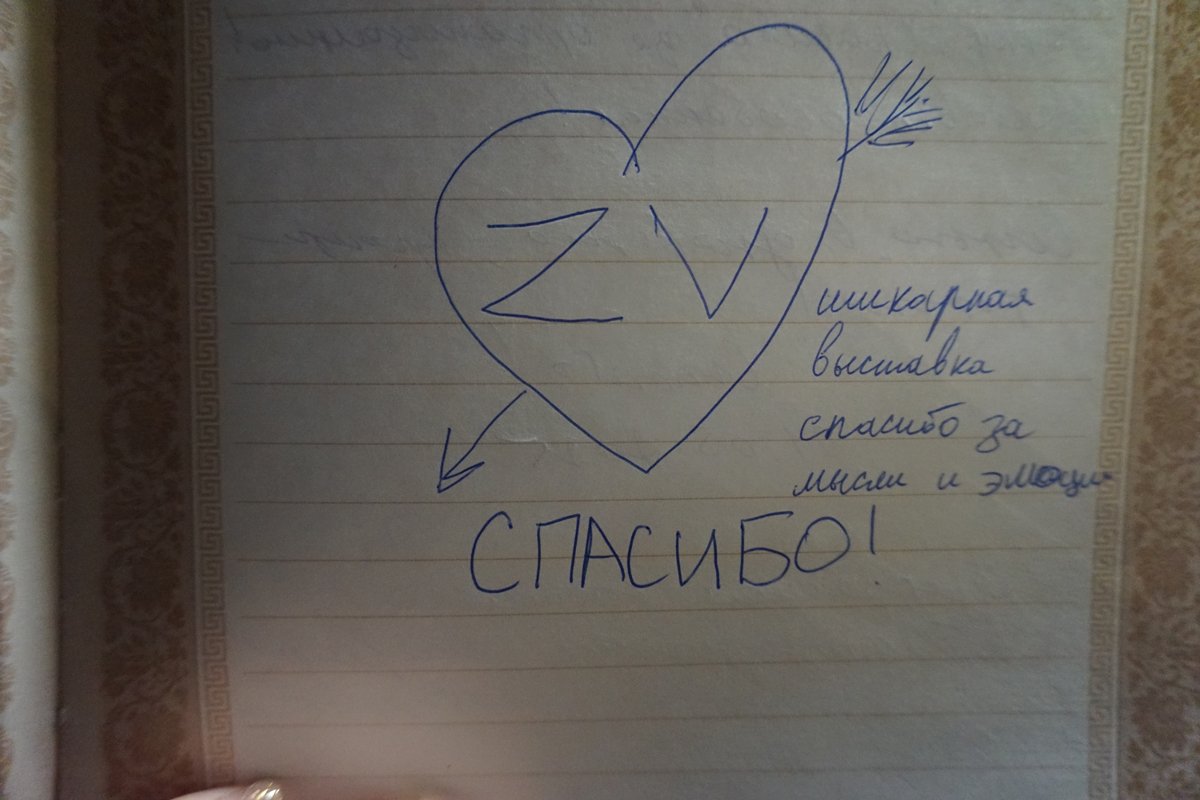 ZV
шикарная
выставка
спасибо за
мысли и эмоции
СПАСИБО!